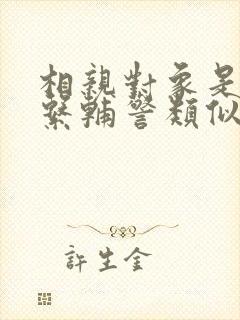 相親對象是
緊輔警類似
許生金